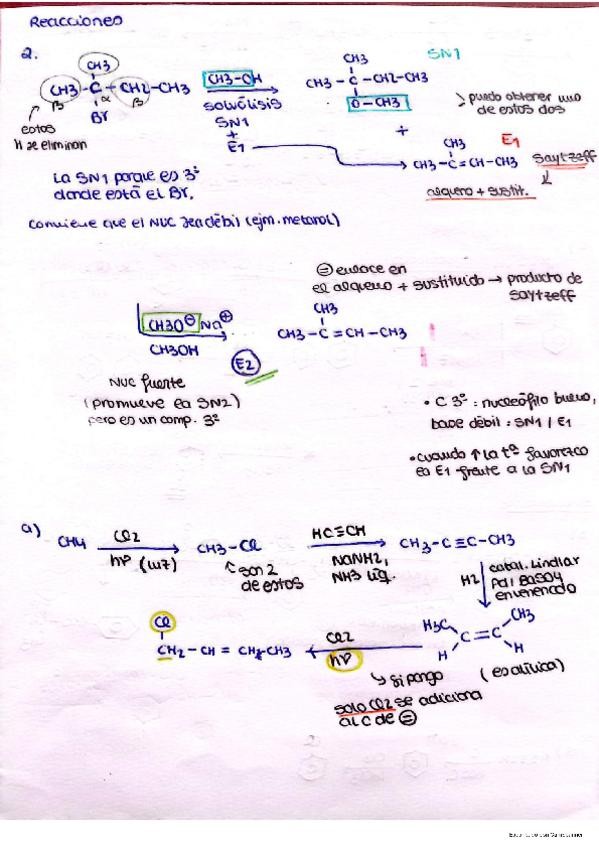 Reacciones
2.
CH3
CH3 - C - CH2 - CH3
β α β
Br
estos
H se eliminan
CH3-OH
solvólisis
SN1
+
E1
CH3
CH3 - C - CH2 - CH3
O - CH3
SN1
puedo obtener uno
de estos dos
+
E1
CH3
CH3 - C = CH - CH3
Saytzeff
alqueno + sustit.
La SN1 porque es 3º
donde está el Br.
Conviene que el NUC sea débil (ejm. metanol)
= enlace en
el alqueno + sustituido → producto de
saytzeff
CH3O⊖ Na⊕
CH3OH
E2
CH3
CH3 - C = CH - CH3
NUC fuerte
(promueve la SN2)
pero es un comp. 3º
• C 3º : nucleófilo bueno,
base débil = SN1 / E1
• cuando ↑ la tº favorezco
la E1 frente a la SN1
a)
CH4
Cl2
hν (luz)
CH3 - Cl
son 2
de estos
HC≡CH
NaNH2,
NH3 líq.
CH3 - C ≡ C - CH3
H2
catal. Lindlar
Pd / BaSO4
envenenado
H3C CH3
C = C
H H
(es alílica)
Cl2
hν
si pongo
solo Cl2 se adiciona
al C de =
Cl
CH2 - CH = CH - CH3